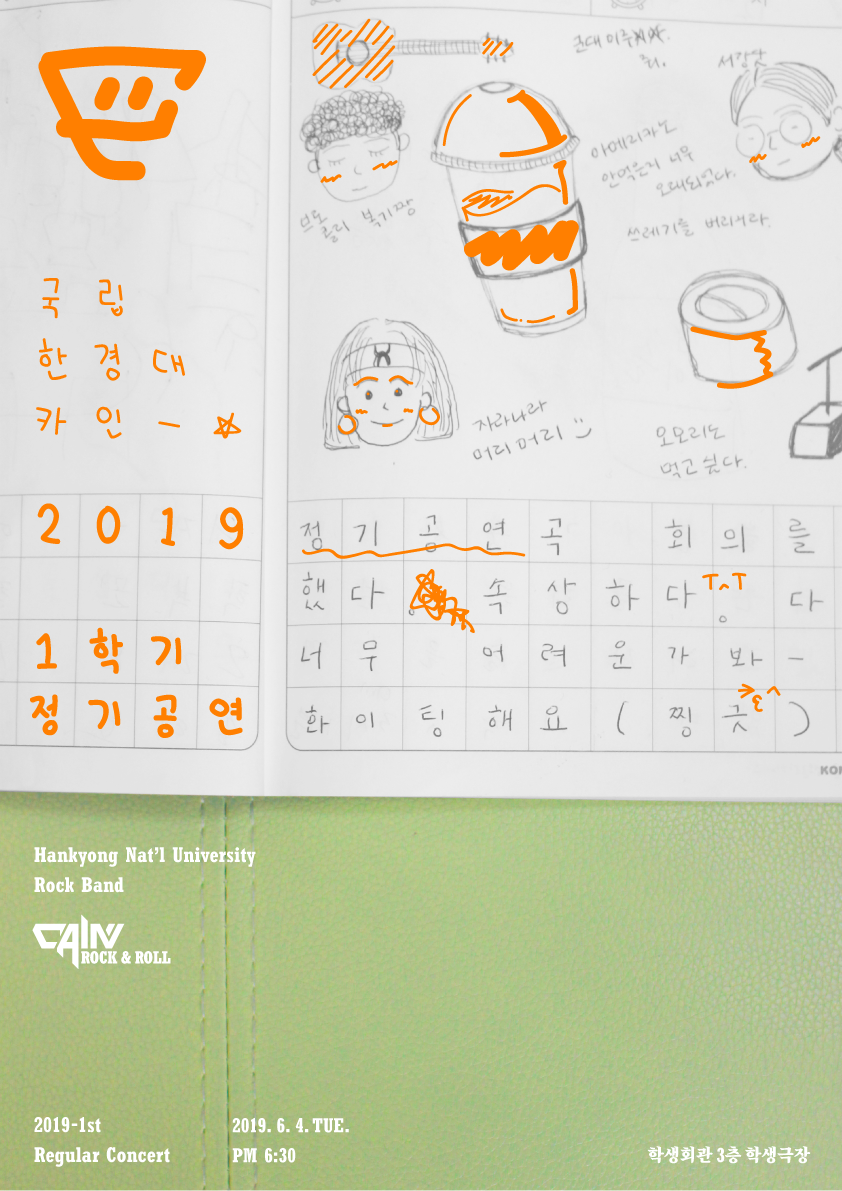 국립
한경대
카인-☆
2019
1학기
정기공연
군대 이주
서강맛
아메리카노
안먹은지 너무
오래되었다.
쓰레기를 버리시라.
브도
롱디 복기짱
자라나라
머리 머리 :)
오모리도
먹고 싶다.
정기공연곡 회의를
했다. 속상하다T^T. 다
너무 어려운가봐-
화이팅해요(찡긋>ε^)
KOR
Hankyong Nat'l University
Rock Band
CAIN
ROCK & ROLL
2019-1st
Regular Concert
2019. 6. 4. TUE.
PM 6:30
학생회관 3층 학생극장